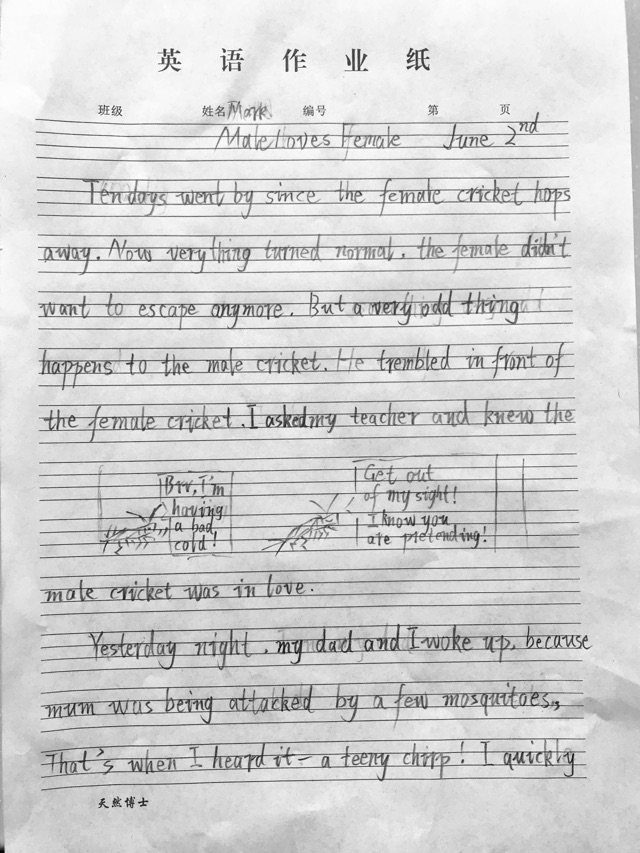 英语作业纸
班级 姓名 Mark 编号 第 页
Male Loves Female June 2nd
Ten days went by since the female cricket hops
away. Now very thing turned normal. the female didn't
want to escape anymore. But a very odd thing
happens to the male cricket. He trembled in front of
the female cricket. I asked my teacher and knew the
Brr, I'm
having
a bad
cold!
Get out
of my sight!
I know you
are pretending!
male cricket was in love.
Yesterday night, my dad and I woke up, because
mum was being attacked by a few mosquitoes,
That's when I heard it – a teeny chirp! I quickly
天然博士